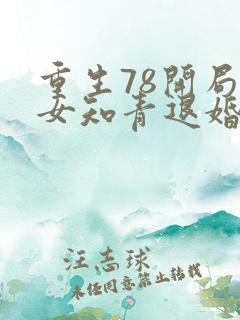 重生78开局
女知青退婚
汪志球
未经同意禁止转载